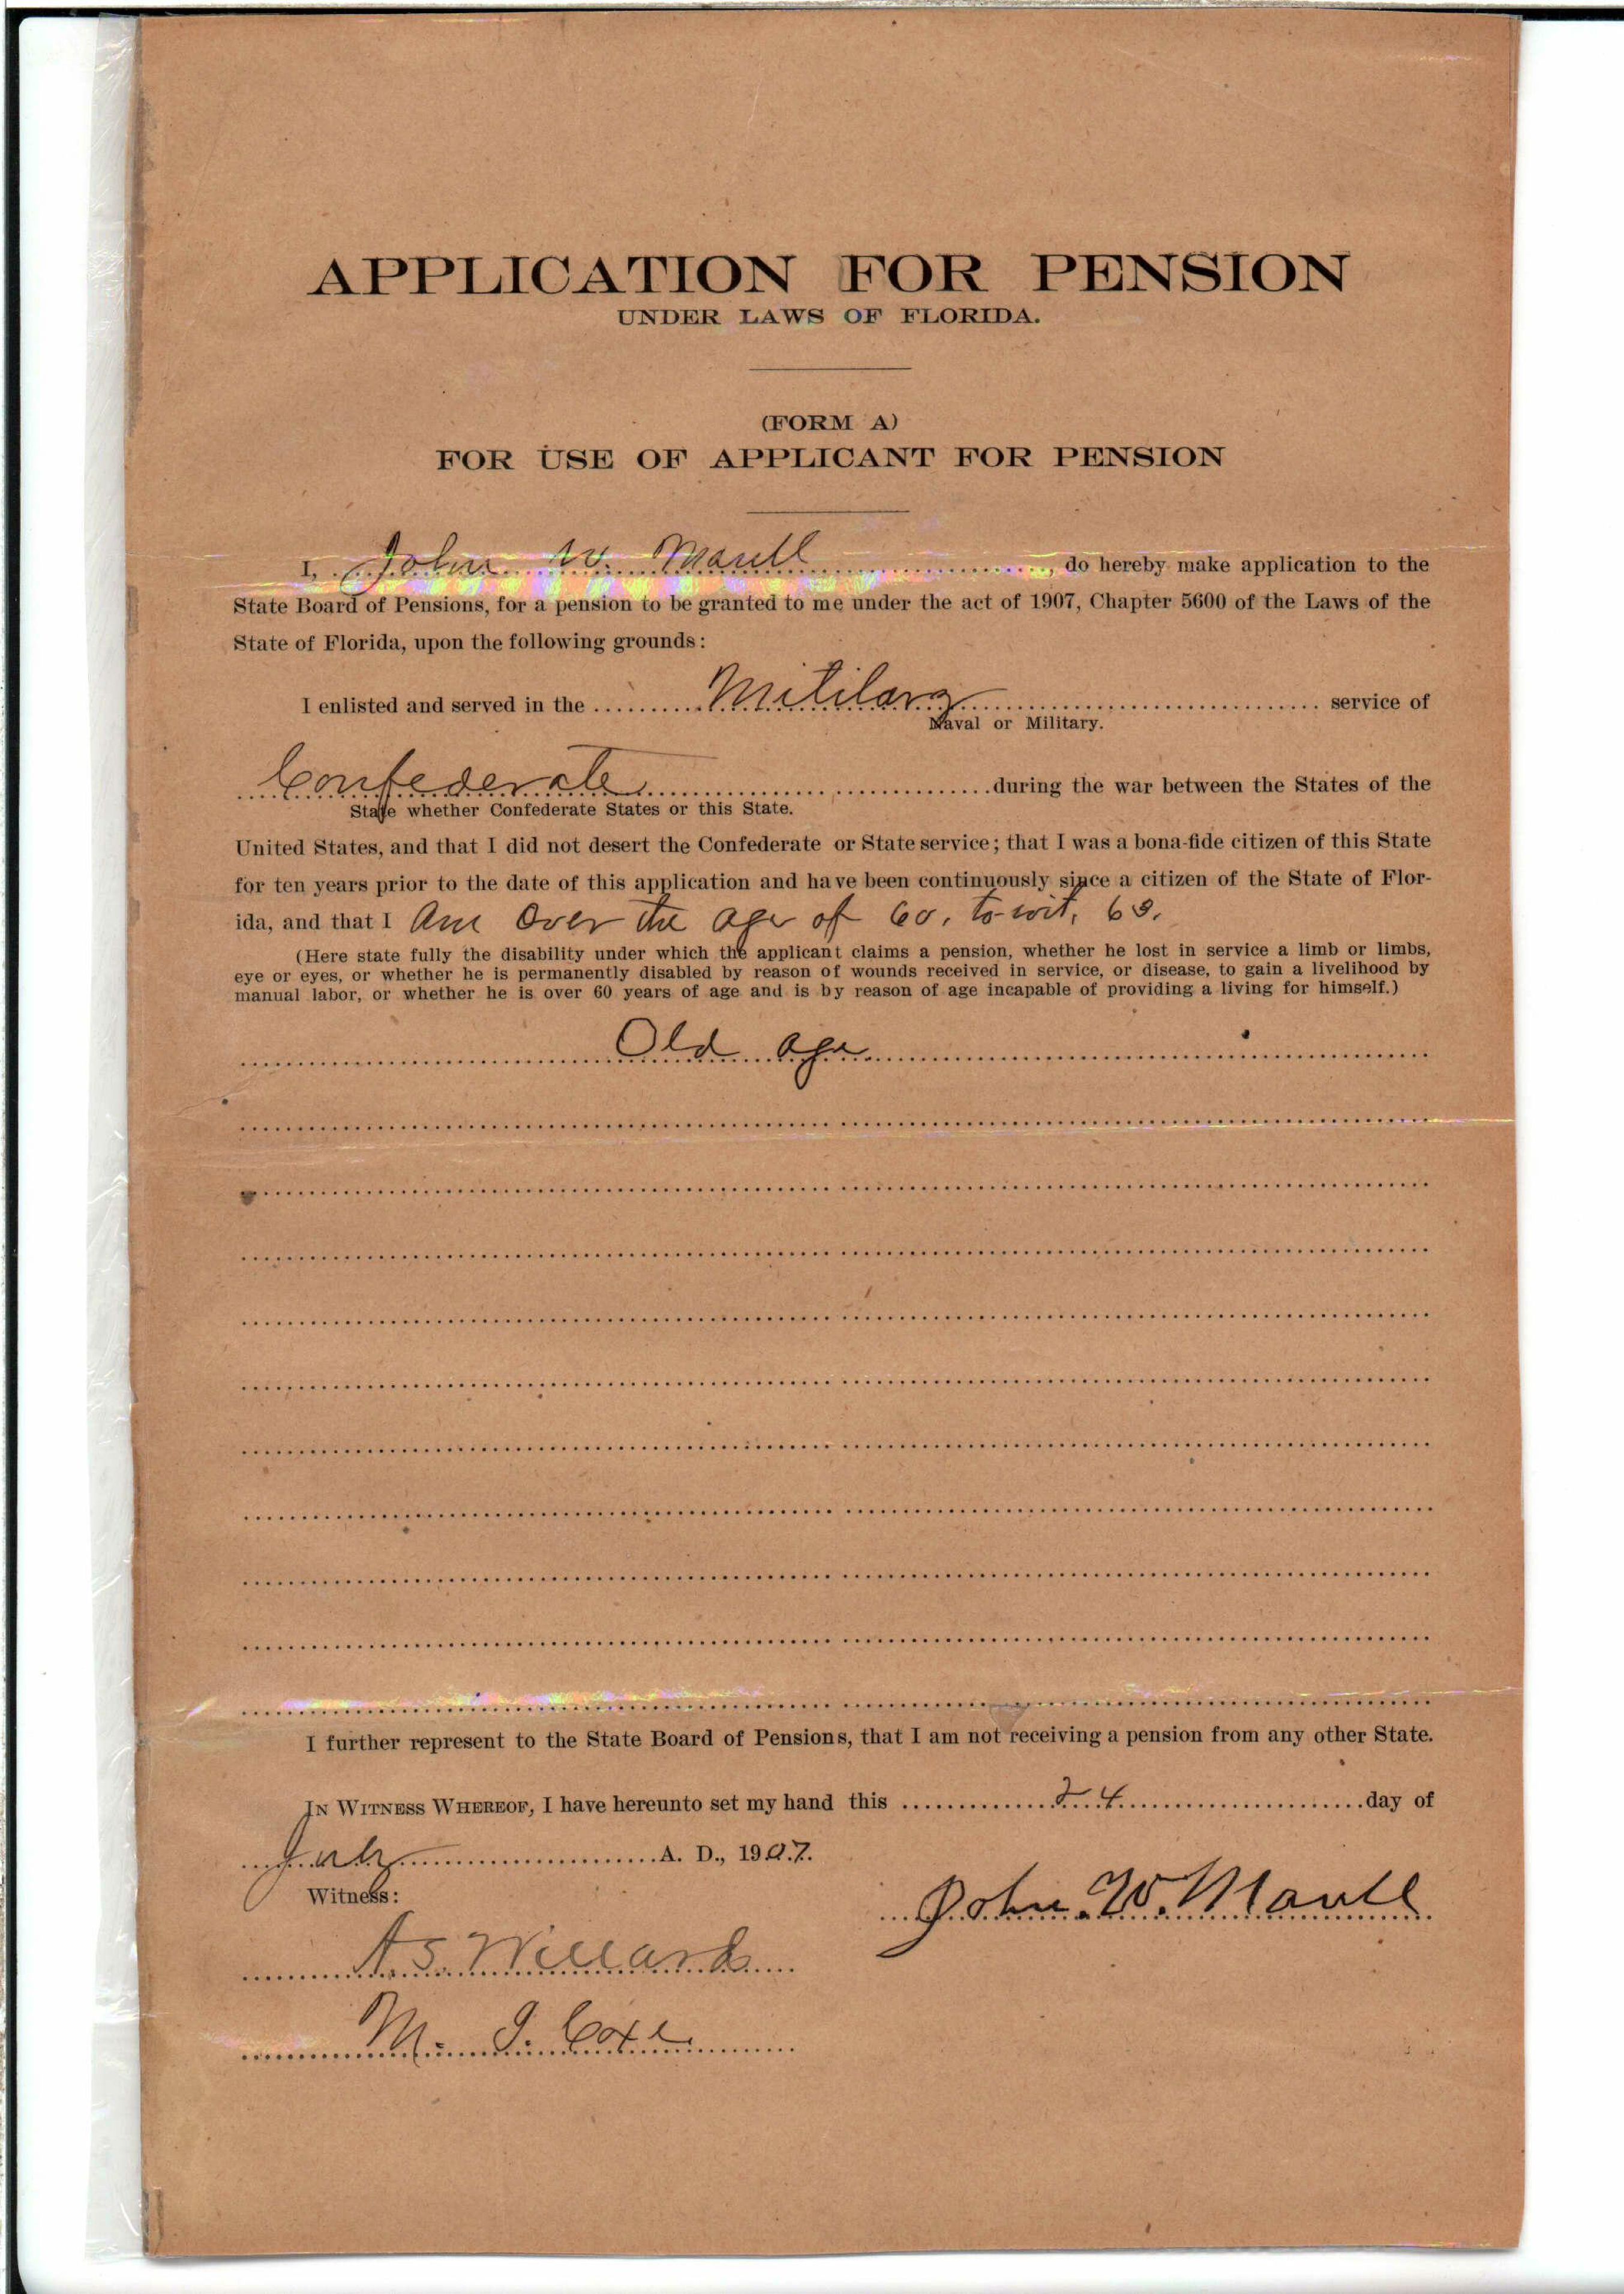 APPLICATION FOR PENSION
UNDER LAWS OF FLORIDA.
(FORM A)
FOR USE OF APPLICANT FOR PENSION
I, John W. Maull, do hereby make application to the
State Board of Pensions, for a pension to be granted to me under the act of 1907, Chapter 5600 of the Laws of the
State of Florida, upon the following grounds:
I enlisted and served in the Military service of
Naval or Military.
Confederate during the war between the States of the
State whether Confederate States or this State.
United States, and that I did not desert the Confederate or State service; that I was a bona-fide citizen of this State
for ten years prior to the date of this application and have been continuously since a citizen of the State of Flor-
ida, and that I am over the age of 60, to-wit,
(Here state fully the disability under which the applicant claims a pension, whether he lost in service a limb or limbs,
eye or eyes, or whether he is permanently disabled by reason of wounds received in service, or disease, to gain a livelihood by
manual labor, or whether he is over 60 years of age and is by reason of age incapable of providing a living for himself.)
Old age
I further represent to the State Board of Pensions, that I am not receiving a pension from any other State.
IN WITNESS WHEREOF, I have hereunto set my hand this 24 day of
July A. D., 1907.
Witness:
John W. Maull
A. S. Willard
M. J. Coxe